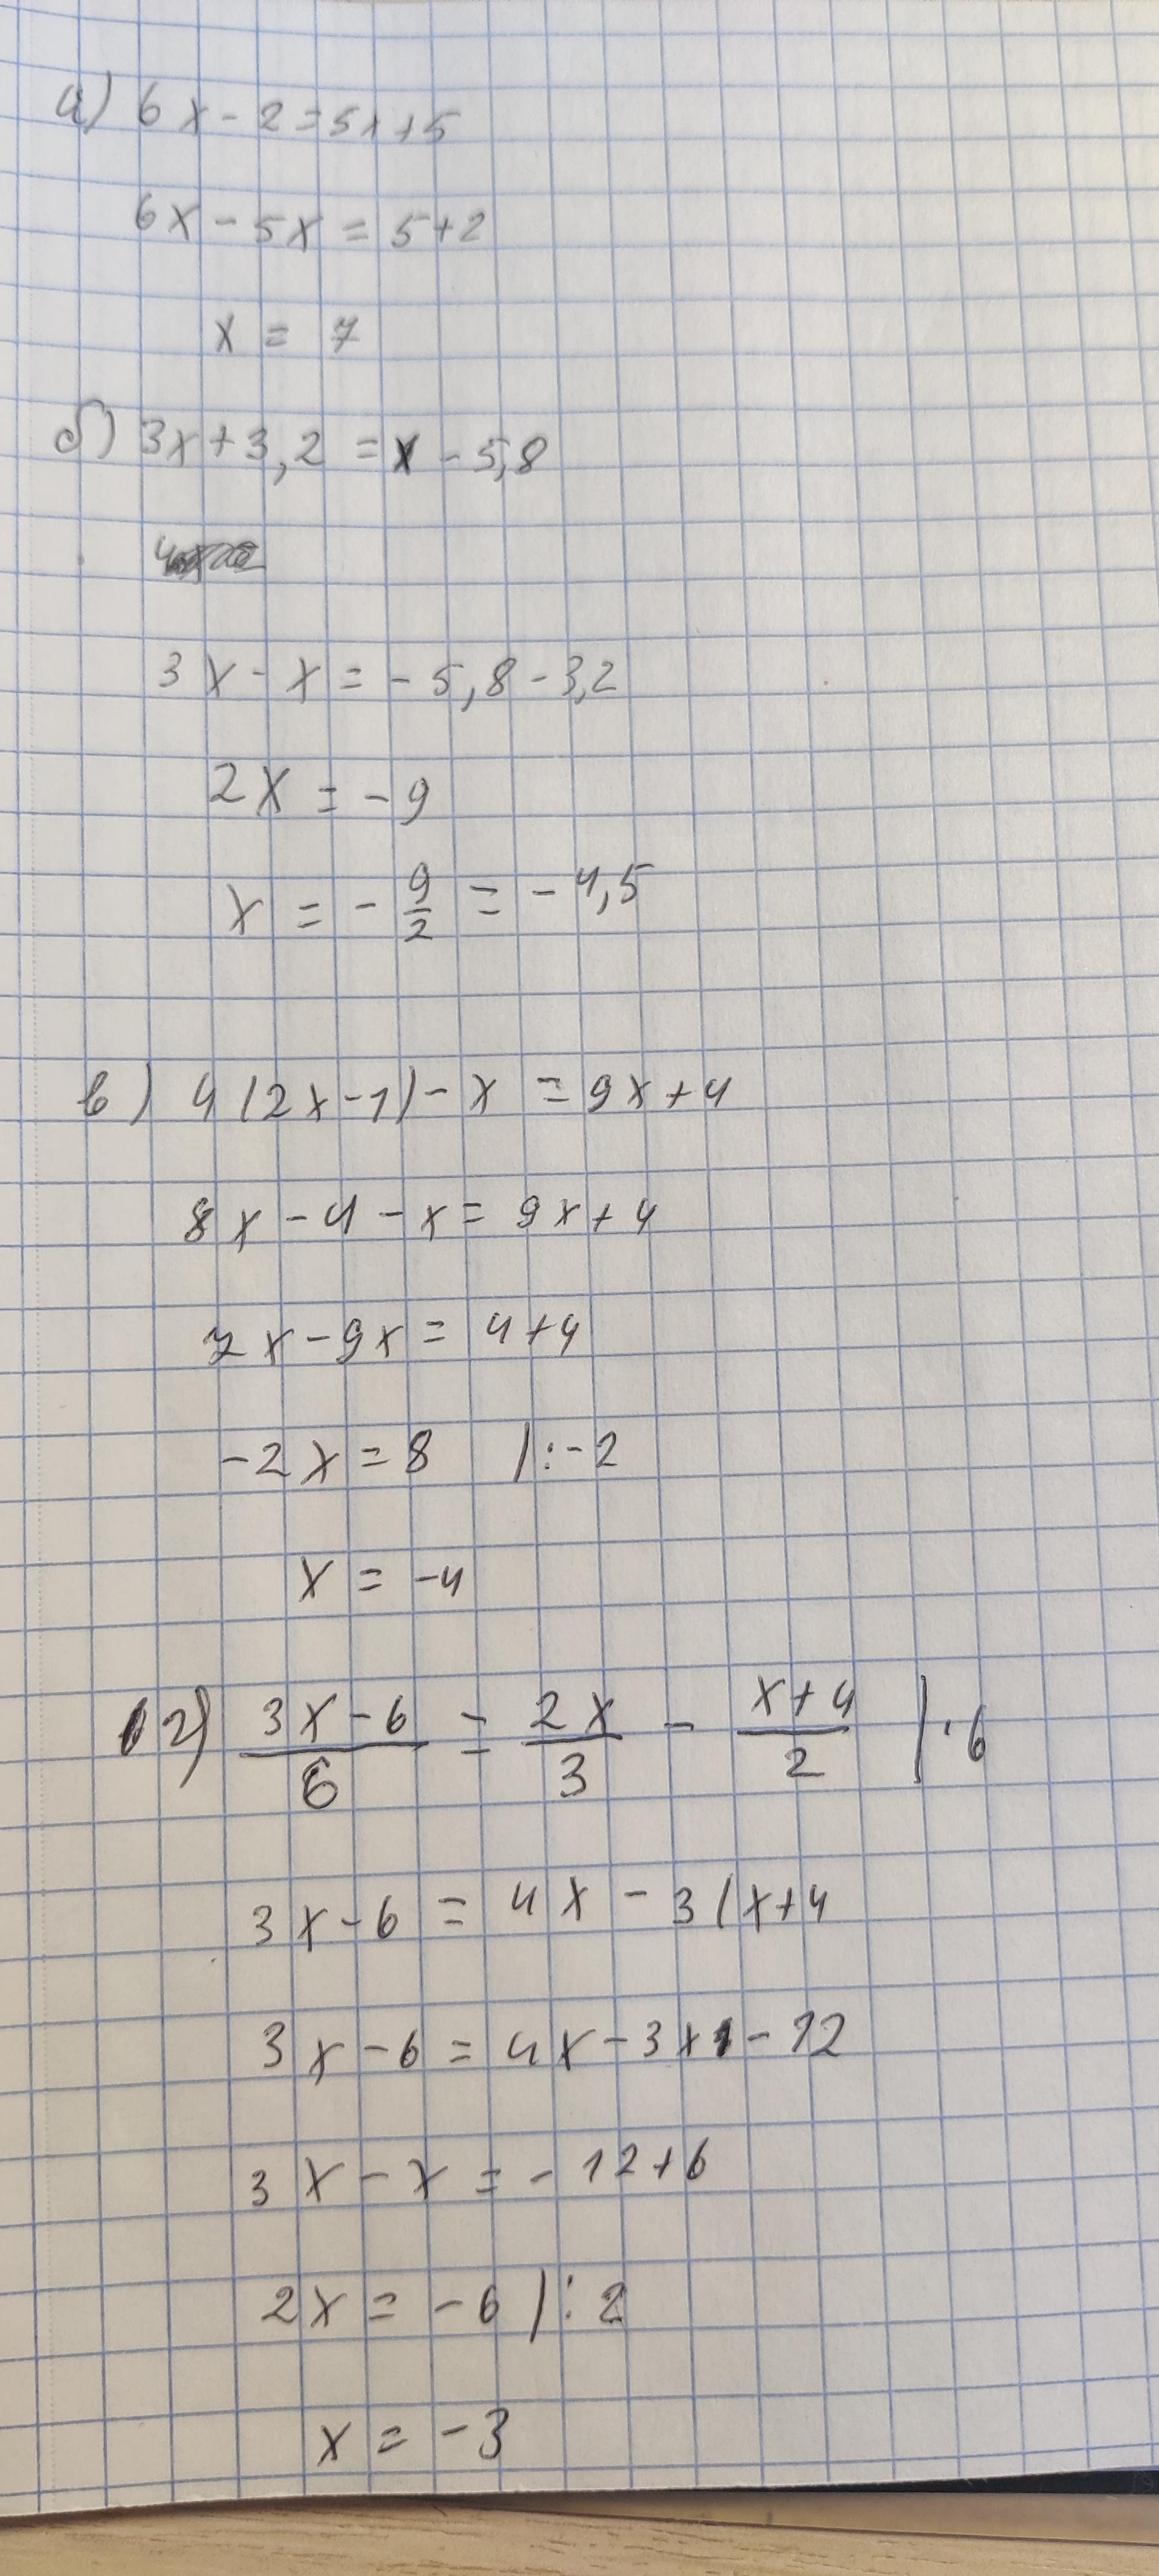 а) 6x - 2 = 5x + 5
6x - 5x = 5 + 2
x = 7
б) 3x + 3,2 = x - 5,8
3x - x = - 5,8 - 3,2
2x = - 9
x = - 9/2 = - 4,5
в) 4(2x - 1) - x = 9x + 4
8x - 4 - x = 9x + 4
7x - 9x = 4 + 4
-2x = 8 | : -2
x = -4
г) (3x - 6)/6 = 2x/3 - (x + 4)/2 | · 6
3x - 6 = 4x - 3(x + 4
3x - 6 = 4x - 3x - 12
3x - x = - 12 + 6
2x = - 6 | : 2
x = - 3